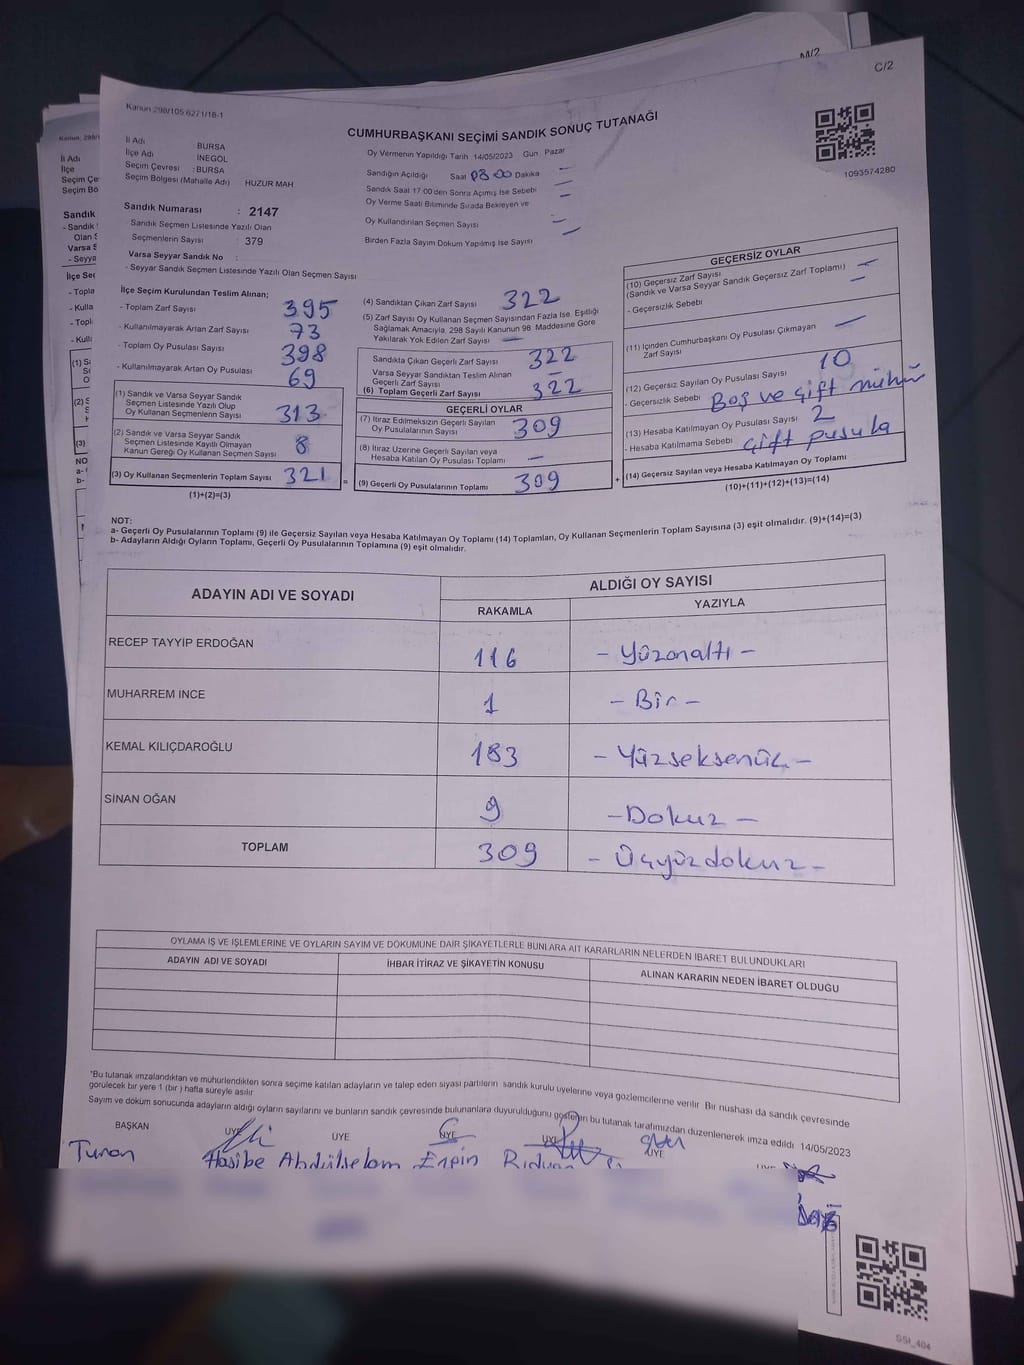 M/2
C/2
Kanun 298/105 6271/18-1
CUMHURBAŞKANI SEÇİMİ SANDIK SONUÇ TUTANAĞI
1093574280
İl Adı BURSA
İlçe Adı İNEGÖL
Seçim Çevresi : BURSA
Seçim Bölgesi (Mahalle Adı) HUZUR MAH
Sandık Numarası : 2147
Sandık Seçmen Listesinde Yazılı Olan
Seçmenlerin Sayısı : 379
Varsa Seyyar Sandık No :
- Seyyar Sandık Seçmen Listesinde Yazılı Olan Seçmen Sayısı
Oy Vermenin Yapıldığı Tarih 14/05/2023 Gün Pazar
Sandığın Açıldığı Saat 08 00 Dakika
Sandık Saat 17 00'den Sonra Açımış İse Sebebi —
Oy Verme Saati Bitiminde Sırada Bekleyen ve
Oy Kullandırılan Seçmen Sayısı —
Birden Fazla Sayım Döküm Yapılmış İse Sayısı —
İlçe Seçim Kurulundan Teslim Alınan;
- Toplam Zarf Sayısı 395
- Kullanılmayarak Artan Zarf Sayısı 73
- Toplam Oy Pusulası Sayısı 398
- Kullanılmayarak Artan Oy Pusulası 69
(1) Sandık ve Varsa Seyyar Sandık
Seçmen Listesinde Yazılı Olup
Oy Kullanan Seçmenlerin Sayısı 313
(2) Sandık ve Varsa Seyyar Sandık
Seçmen Listesinde Kayıtlı Olmayan
Kanun Gereği Oy Kullanan Seçmen Sayısı 8
(3) Oy Kullanan Seçmenlerin Toplam Sayısı 321 =
(1)+(2)=(3)
(4) Sandıktan Çıkan Zarf Sayısı 322
(5) Zarf Sayısı Oy Kullanan Seçmen Sayısından Fazla İse, Eşitliği
Sağlamak Amacıyla, 298 Sayılı Kanunun 98. Maddesine Göre
Yakılarak Yok Edilen Zarf Sayısı —
Sandıkta Çıkan Geçerli Zarf Sayısı 322
Varsa Seyyar Sandıktan Teslim Alınan
Geçerli Zarf Sayısı —
(6) Toplam Geçerli Zarf Sayısı 322
GEÇERLİ OYLAR
(7) İtiraz Edilmeksizin Geçerli Sayılan
Oy Pusulalarının Sayısı 309
(8) İtiraz Üzerine Geçerli Sayılan veya
Hesaba Katılan Oy Pusulası Toplamı —
(9) Geçerli Oy Pusulalarının Toplamı 309 +
GEÇERSİZ OYLAR
(10) Geçersiz Zarf Sayısı —
(Sandık ve Varsa Seyyar Sandık Geçersiz Zarf Toplamı) —
- Geçersizlik Sebebi
(11) İçinden Cumhurbaşkanı Oy Pusulası Çıkmayan
Zarf Sayısı —
(12) Geçersiz Sayılan Oy Pusulası Sayısı 10
- Geçersizlik Sebebi Boş ve çift mühür
(13) Hesaba Katılmayan Oy Pusulası Sayısı 2
- Hesaba Katılmama Sebebi çift pusula
(14) Geçersiz Sayılan veya Hesaba Katılmayan Oy Toplamı
(10)+(11)+(12)+(13)=(14)
NOT:
a- Geçerli Oy Pusulalarının Toplamı (9) ile Geçersiz Sayılan veya Hesaba Katılmayan Oy Toplamı (14) Toplamları, Oy Kullanan Seçmenlerin Toplam Sayısına (3) eşit olmalıdır. (9)+(14)=(3)
b- Adayların Aldığı Oyların Toplamı, Geçerli Oy Pusulalarının Toplamına (9) eşit olmalıdır.
ADAYIN ADI VE SOYADI ALDIĞI OY SAYISI
RAKAMLA YAZIYLA
RECEP TAYYİP ERDOĞAN 116 - Yüzonaltı -
MUHARREM İNCE 1 - Bir -
KEMAL KILIÇDAROĞLU 183 - Yüzseksenüç -
SİNAN OĞAN 9 - Dokuz -
TOPLAM 309 - Üçyüzdokuz -
OYLAMA İŞ VE İŞLEMLERİNE VE OYLARIN SAYIM VE DÖKÜMÜNE DAİR ŞİKAYETLERLE BUNLARA AİT KARARLARIN NELERDEN İBARET BULUNDUKLARI
ADAYIN ADI VE SOYADI İHBAR İTİRAZ VE ŞİKAYETİN KONUSU ALINAN KARARIN NEDEN İBARET OLDUĞU
"Bu tutanak imzalandıktan ve mühürlendikten sonra seçime katılan adayların ve talep eden siyasi partilerin sandık kurulu üyelerine veya gözlemcilerine verilir. Bir nüshası da sandık çevresinde
görülecek bir yere 1 (bir) hafta süreyle asılır
Sayım ve döküm sonucunda adayların aldığı oyların sayılarını ve bunların sandık çevresinde bulunanlara duyurulduğunu gösteren bu tutanak tarafımızdan düzenlenerek imza edildi 14/05/2023
BAŞKAN ÜYE ÜYE ÜYE ÜYE ÜYE ÜYE
Turan Hasibe Abdülselam Ergin Rıdvan
SSI_404